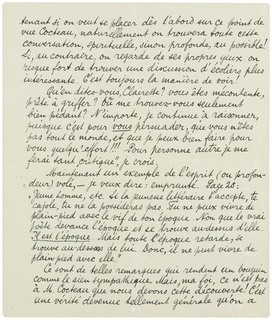 tenant si on veut se placer dès l'abord sur ce point de
vue Cocteau, naturellement on trouvera toute cette
conversation, spirituelle, sinon profonde, au possible!
Si, au contraire, on regarde de ses propres yeux on
risque fort de trouver une discussion d'écoliers plus
intéressante. C'est toujours la manière de voir!
Qu'en dites-vous, Clairette? vous êtes mécontente,
prête à griffer? Ou me trouvez-vous seulement
bien pédant? N'importe, je continue à raisonner,
puisque c'est pour vous persuader, que vous n'êtes
pas tout le monde, et que je peux bien faire pour
vous quelqu'effort!!! Pour personne autre je me
ferai tant critique", je crois.
Maintenant un exemple de l'esprit (ou profon-
deur) volé, — je veux dire: emprunté. Page 28:
"Jeune homme, etc. si la jeunesse littéraire t'accepte, te
cajole, tu ne la possèdes pas. Tu ne peux vivre de
plain-pied avec le vif de ton époque. Non que le vrai
poète devance l'époque et se trouve au-dessus d'elle.
Il est l'époque. Mais toute l'époque retarde, se
trouve au-dessous de lui. Donc, il ne peut vivre de
plain-pied avec elle."
Ce sont de telles remarques qui rendent un bouquin
comme le sien sympathique. Mais, ma foi, ce n'est pas
à M. Cocteau que nous devons cette découverte! C'est
une vérité devenue tellement générale qu'on a